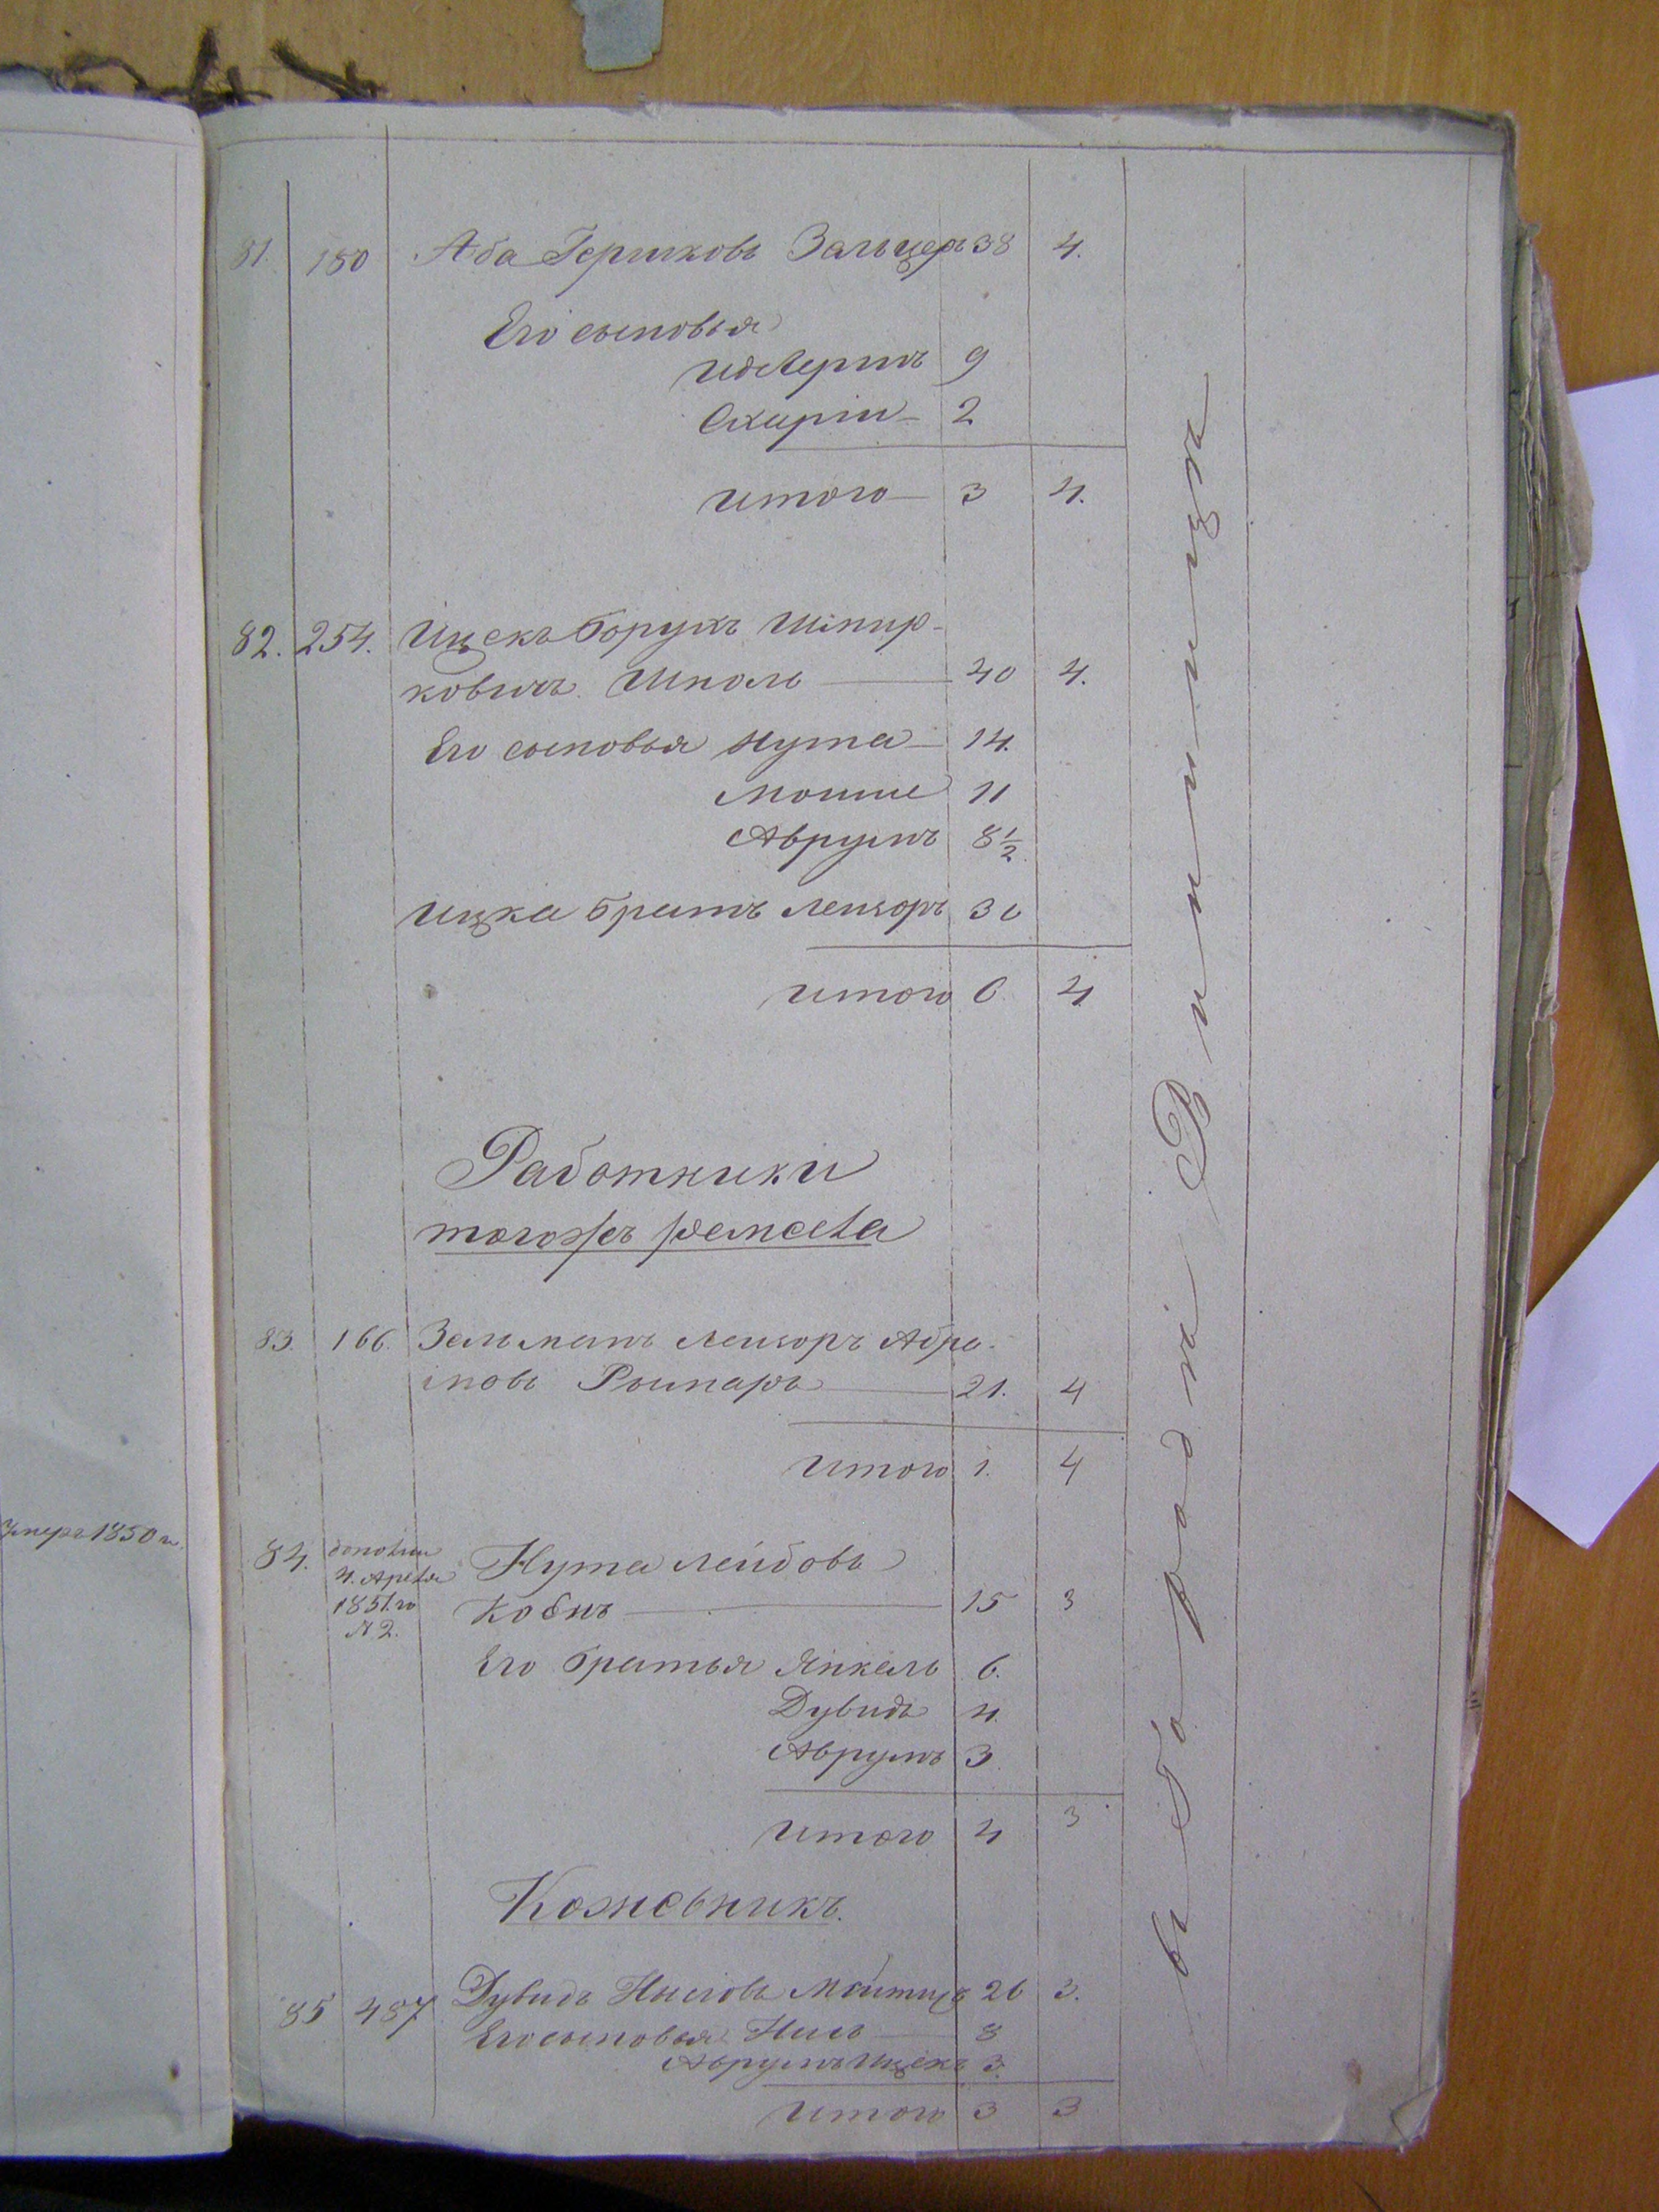 81. 180 Аба Гершковъ Зальцеръ 38 4.
Его сыновья
9
2
Итого 3 4.
82. 254. Ицекъ Борухъ Шпир-
ковичъ Школь 40 4.
Его сыновья Нута 14.
Мошие 11
Аврумъ 8½
Ицка братъ Лейзоръ 30
Итого 6. 4
Работники
тогожъ ремесла
83. 166. Зельманъ Лейзоръ Абра-
мовъ Рымаръ 21. 4
Итого 1. 4
Умеръ 1850 г.
84. 4. Апреля 1851 го № 2. Нута Лейбовъ
15 3
Его братья Янкель 6.
Дувидъ 4.
Аврумъ 3.
Итого 4 3
Кожевникъ.
85 487 Дувидъ 26 3.
Его сыновья 8
Аврумъ Ицекъ 3.
Итого 3 3
въ городѣ Винница